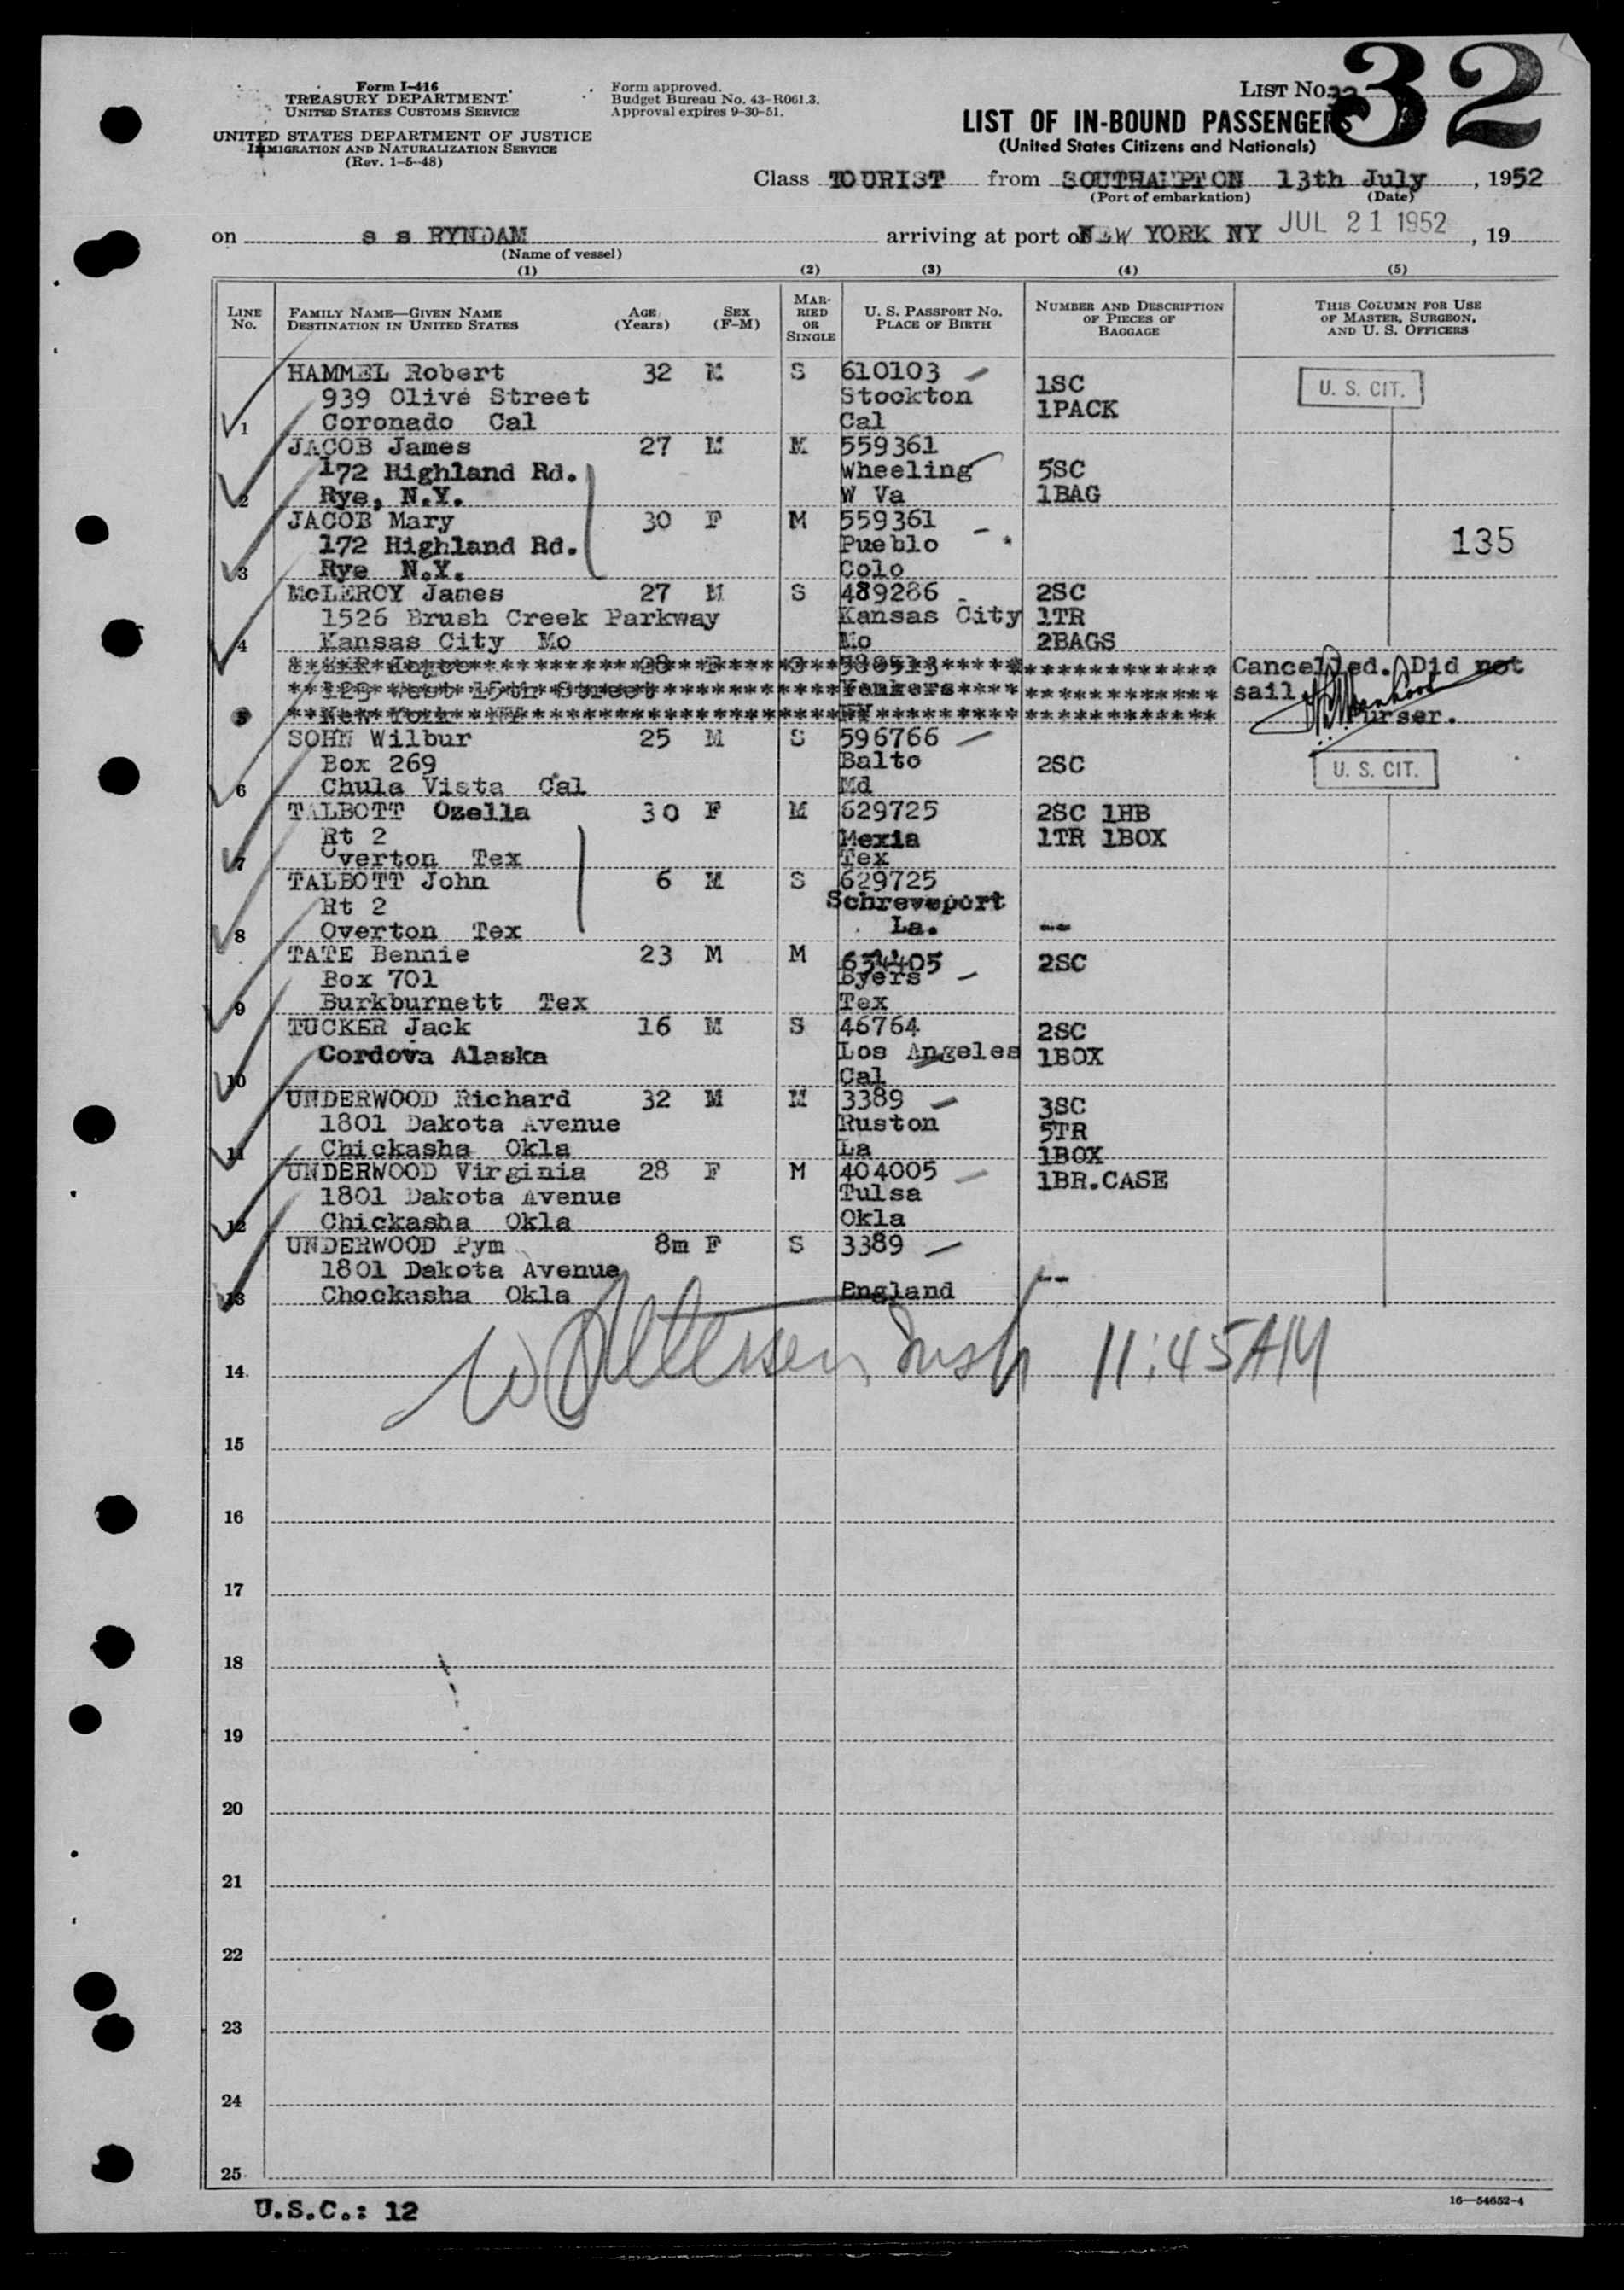 Form I-416
TREASURY DEPARTMENT
UNITED STATES CUSTOMS SERVICE
UNITED STATES DEPARTMENT OF JUSTICE
IMMIGRATION AND NATURALIZATION SERVICE
(Rev. 1-5-48)
Form approved.
Budget Bureau No. 43-R061.3.
Approval expires 9-30-51.
LIST No. 32
32
LIST OF IN-BOUND PASSENGERS
(United States Citizens and Nationals)
Class TOURIST from SOUTHAMPTON 13th July, 1952
(Port of embarkation) (Date)
on s s RYNDAM arriving at port of NEW YORK NY JUL 21 1952, 19
(Name of vessel)
(1) (2) (3) (4) (5)
LINE No. FAMILY NAME—GIVEN NAME DESTINATION IN UNITED STATES AGE (Years) SEX (F-M) MARRIED OR SINGLE U. S. PASSPORT No. PLACE OF BIRTH NUMBER AND DESCRIPTION OF PIECES OF BAGGAGE THIS COLUMN FOR USE OF MASTER, SURGEON, AND U. S. OFFICERS
HAMMEL Robert 32 M S 610103 U. S. CIT.
939 Olive Street Stockton 1SC
1 Coronado Cal Cal 1PACK
JACOB James 27 M M 559361
172 Highland Rd. Wheeling 5SC
2 Rye, N.Y. W Va 1BAG
JACOB Mary 30 F M 559361
172 Highland Rd. Pueblo 135
3 Rye N.Y. Colo
McLEROY James 27 M S 489286 2SC
1526 Brush Creek Parkway Kansas City 1TR
4 Kansas City Mo Mo 2BAGS
Cancelled. Did not
128 West 15th Street Yonkers sail
5 New York NY NY Purser.
SOHN Wilbur 25 M S 596766
Box 269 Balto 2SC U. S. CIT.
6 Chula Vista Cal Md
TALBOTT Ozella 30 F M 629725 2SC 1HB
Rt 2 Mexia 1TR 1BOX
7 Overton Tex Tex
TALBOTT John 6 M S 629725
Rt 2 Schreveport
8 Overton Tex La. --
TATE Bennie 23 M M 634405 2SC
Box 701 Byers
9 Burkburnett Tex Tex
TUCKER Jack 16 M S 46764 2SC
Cordova Alaska Los Angeles 1BOX
10 Cal
UNDERWOOD Richard 32 M M 3389 3SC
1801 Dakota Avenue Ruston 5TR
11 Chickasha Okla La 1BOX
UNDERWOOD Virginia 28 F M 404005 1BR.CASE
1801 Dakota Avenue Tulsa
12 Chickasha Okla Okla
UNDERWOOD Pym 8m F S 3389
1801 Dakota Avenue --
13 Chockasha Okla England
11:45AM
14
15
16
17
18
19
20
21
22
23
24
25
16—54652-4
U.S.C.: 12